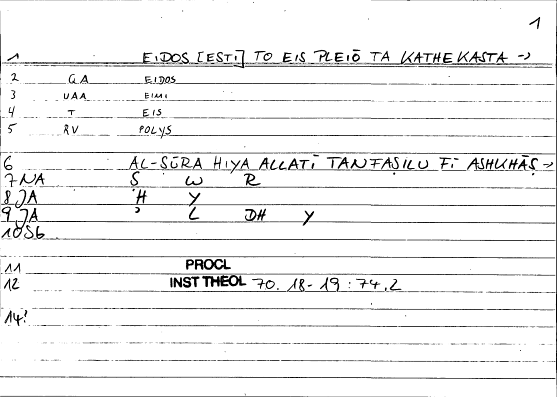 1
1 EIDOS [ESTI] TO EIS PLEIŌ TA KATHEKASTA →
2 QA EIDOS
3 UAA EIMI
4 T EIS
5 RV POLYS
6 AL-ṢŪRA HIYA ALLATĪ TANFAṢILU FĪ ASHKHĀṢ →
7 NA Ṣ W R
8 JA H Y
9 JA ʾ L DH Y
10 Sb
11 PROCL
12 INST THEOL 70. 18-19 : 74.2
14!